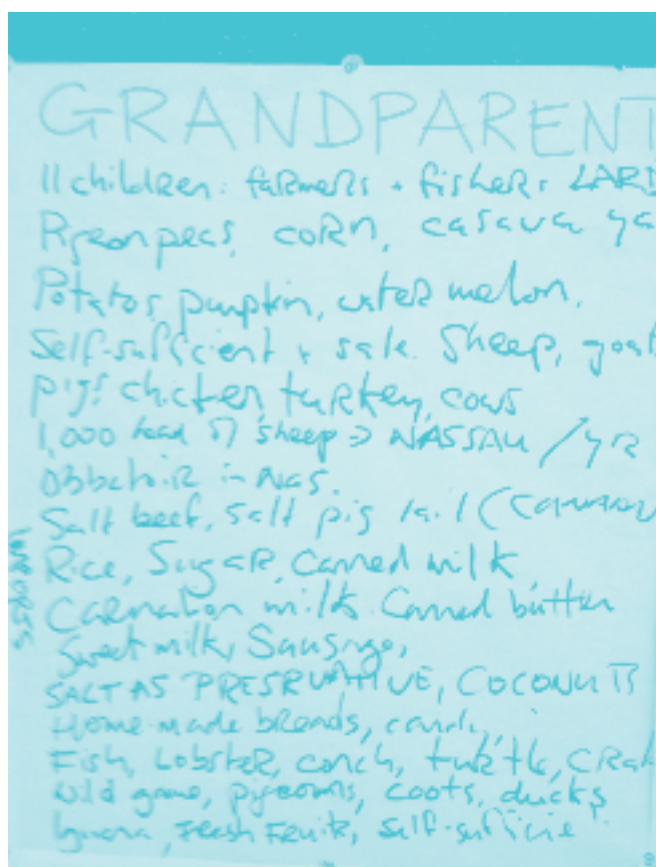 GRANDPARENT
11 children: farmers + fishers LARD
Pigeon peas, corn, casava ya
Potatos, pumpkin, water melon,
Self-sufficient + sale. Sheep, goat
pigs chicken, turkey, cows
1,000 head of sheep => NASSAU / yr
Abbatoir in Nas.
Salt beef, salt pig tail (
Rice, Sugar, Canned milk
Carnation milk. Canned butter
Sweet milk, Sausage,
SALT AS PRESRVATIVE, COCONUTS
Home-made breads, candy,
Fish, Lobster, conch, turtle, Crab
wild game, pigeons, coots, ducks
Iguana, Fresh Fruit, self-suficie